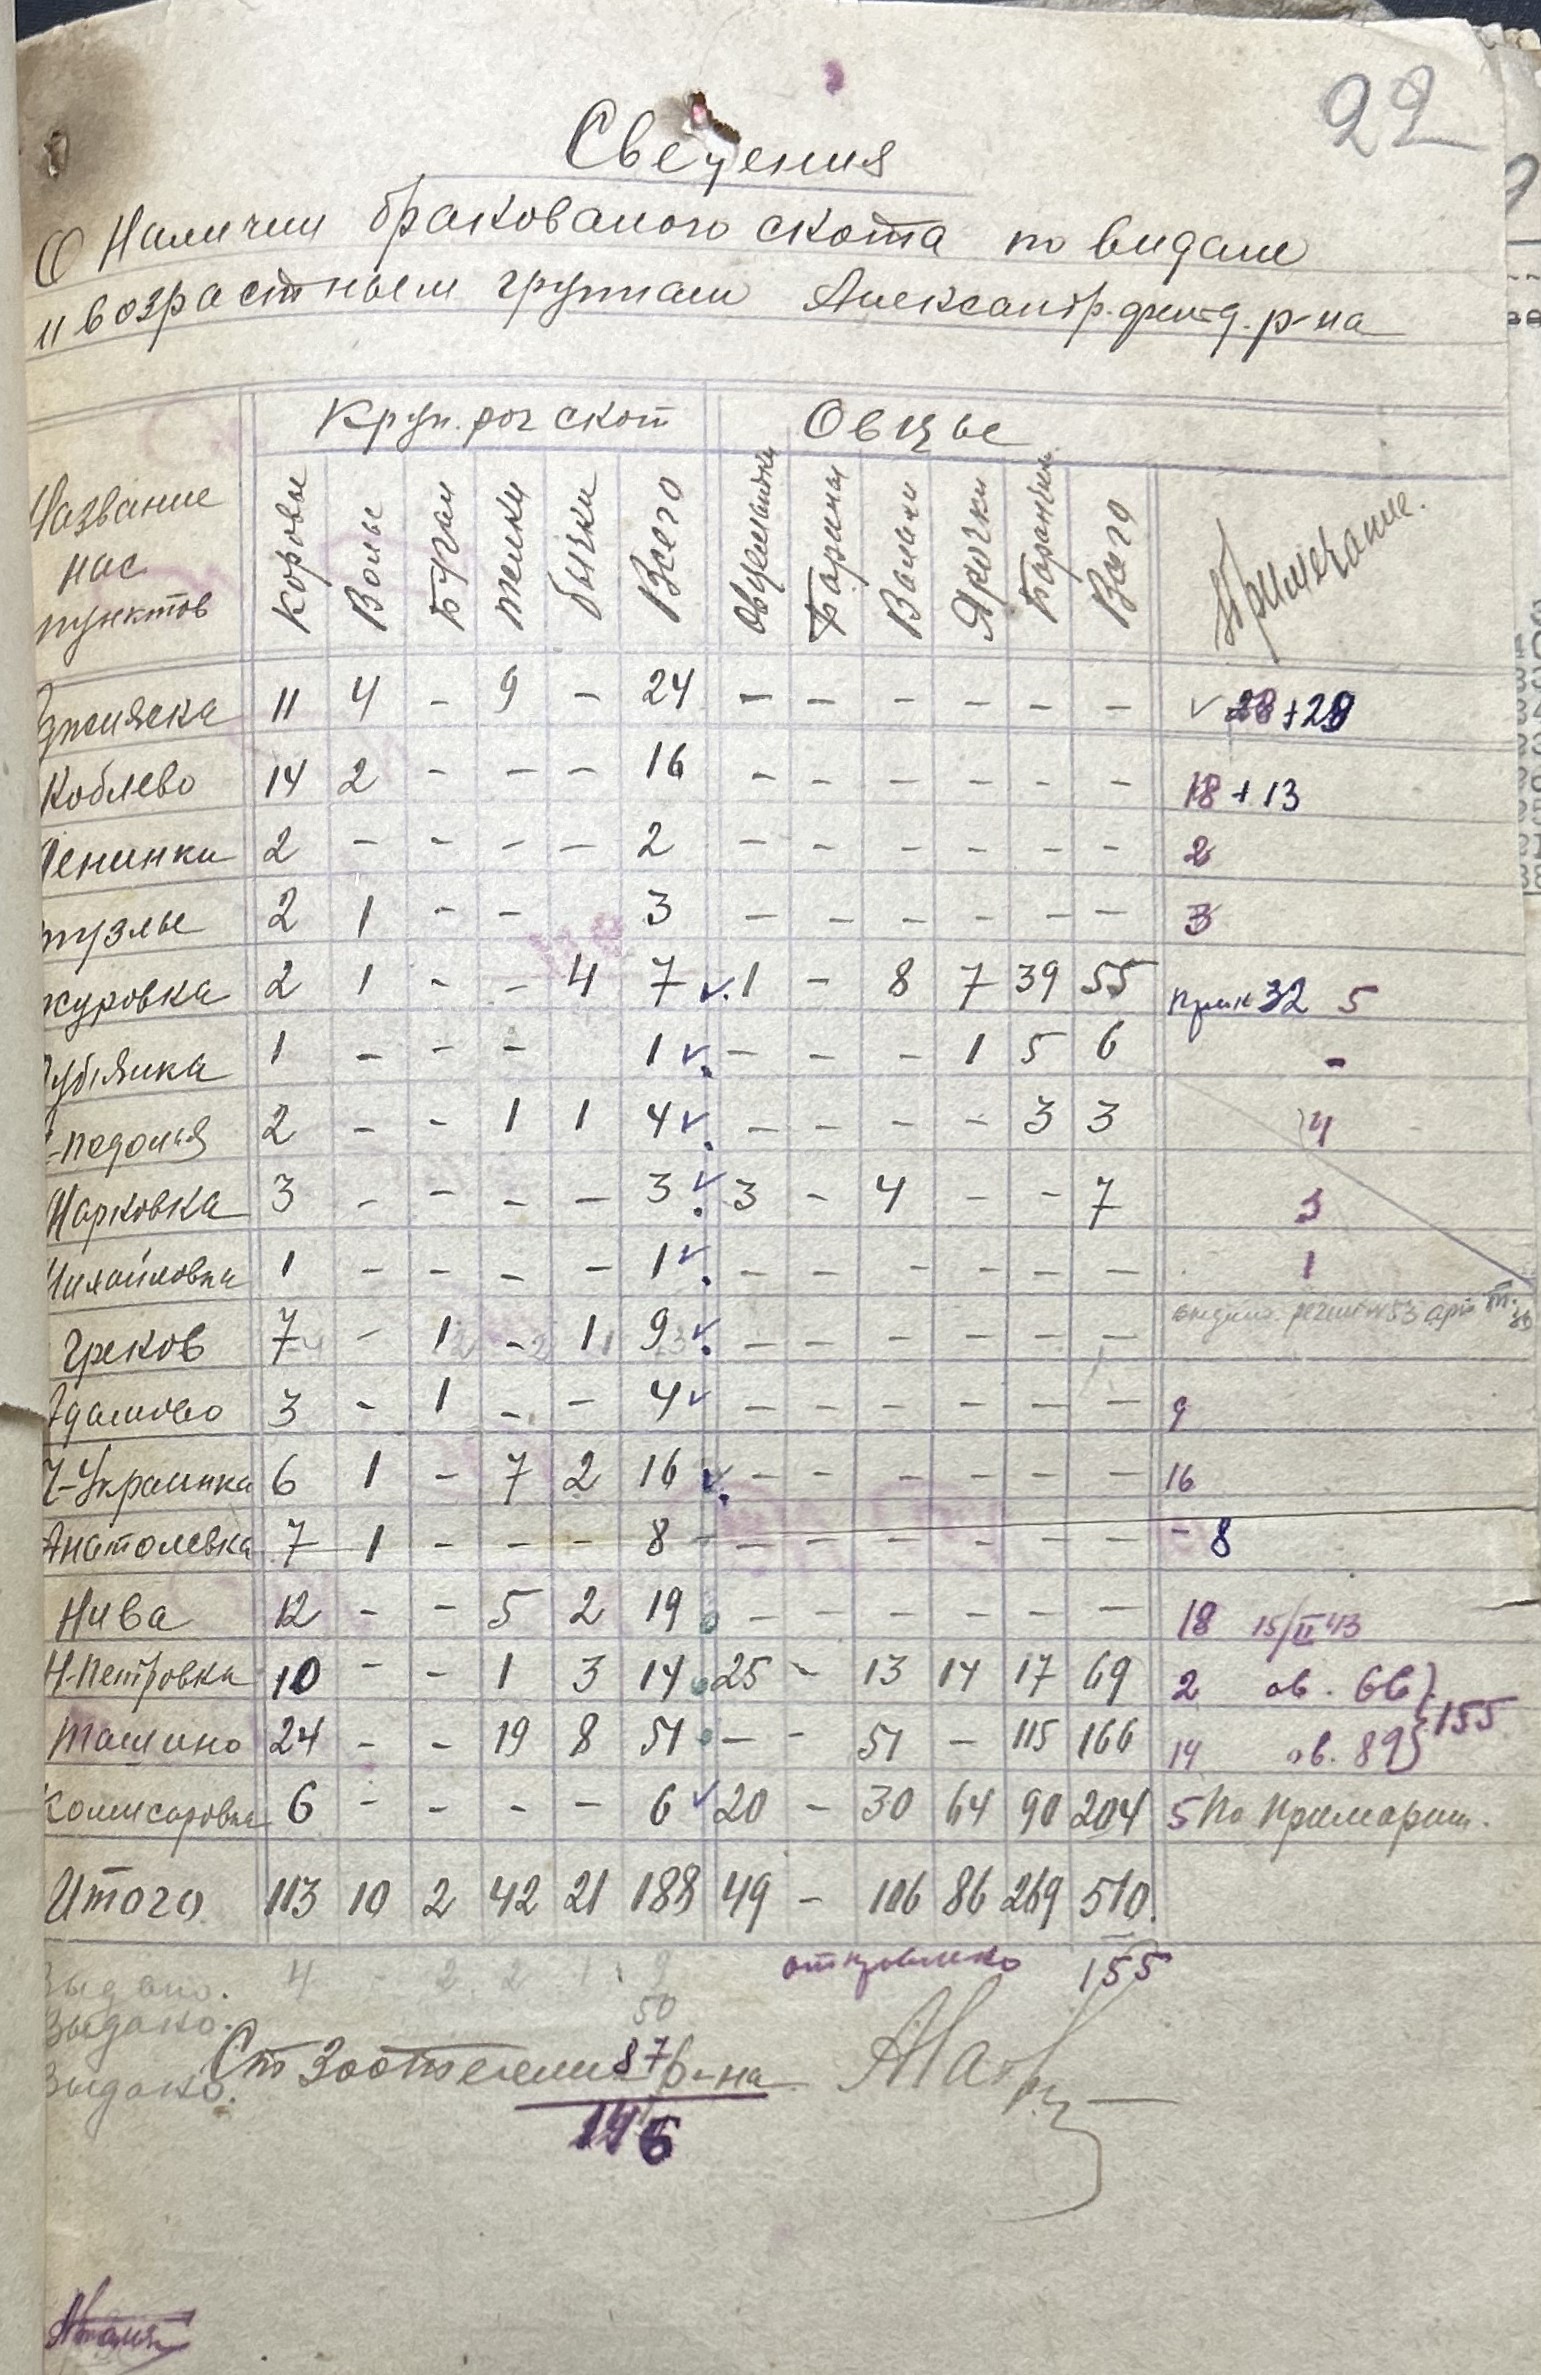 22
Сведения
О Наличии бракованого скота по видам
и возрастным группам Александрфельд. р-на
Название нас пунктов | Круп. рог скот | Овцы | Примечание.
Коровы | Волы | Бугаи | Телки | бычки | Всего | Овцематки | Бараны | Валахи | Ярочки | Баранчики | Всего
11 4 - 9 - 24 - - - - - - 28+28
Коблево 14 2 - - - 16 - - - - - - 18+13
Ленинка 2 - - - - 2 - - - - - - 2
тузлы 2 1 - - 3 - - - - - - 3
журовка 2 1 - - 4 7 1 - 8 7 39 55 32 5
1 - - - 1 - - - 1 5 6 -
-подолья 2 - - 1 1 4 - - - - 3 3 4
Марковка 3 - - - - 3 3 - 4 - - 7 3
Михайловка 1 - - - - 1 - - - - - - 1
Греков 7 - 1 - 1 9 - - - - - -
Адамово 3 - 1 - - 4 - - - - - - 9
Н-Украинка 6 1 - 7 2 16 - - - - - - 16
Анатолевка 7 1 - - - 8 - - - - - - - 8
Нива 12 - - 5 2 19 - - - - - - 18 15/II 43
Н-Петровка 10 - - 1 3 14 25 - 13 14 17 69 2 ов. 66
Ташино 24 - - 19 8 51 - - 51 - 115 166 14 ов. 89 155
Комисаровка 6 - - - - 6 20 - 30 64 90 204 5 По Примарии.
Итого 113 10 2 42 21 188 49 - 106 86 269 510.
Выдано. 4 - 2 2 1 9 155
Выдано. 50
Выдано. Ст Зоотехник р-на 87
146